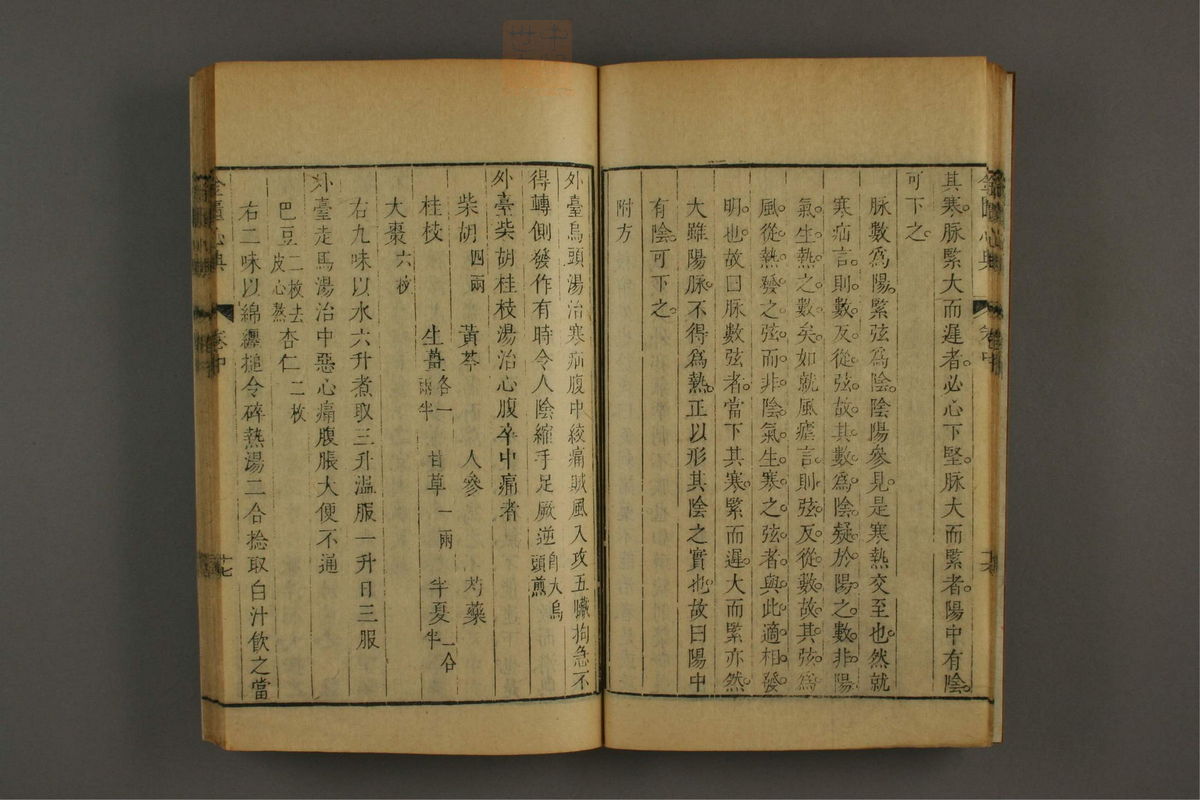 其寒。脉緊大而遲者。必心下堅。脉大而緊者。陽中有陰。
可下之。
脉數爲陽。緊弦爲陰。陰陽參見。是寒熱交至也。然就
寒疝言。則數反從弦。故其數爲陰凝於陽之數。非陽
氣生熱之數矣。如就風瘧言。則弦反從數。故其弦爲
風從熱發之弦。而非陰氣生寒之弦者。與此適相發
明也。故曰脉數弦者。當下其寒。緊而遲。大而緊亦然。
大雖陽脉。不得爲熱。正以形其陰之實也。故曰陽中
有陰。可下之。
附方
外臺烏頭湯治寒疝腹中絞痛賊風入攻五臟拘急不
得轉側發作有時令人陰縮手足厥逆 自大烏頭煎
外臺柴胡桂枝湯治心腹卒中痛者
柴胡四兩 黃芩 人參 芍藥
桂枝 生薑各一兩半 甘草一兩 半夏一合半
大棗六枚
右九味以水六升煮取三升溫服一升日三服
外臺走馬湯治中惡心痛腹脹大便不通
巴豆二枚去皮心熬 杏仁二枚
右二味以綿纏搥令碎熱湯二合捻取白汁飲之當
金匱心典
卷中
十七